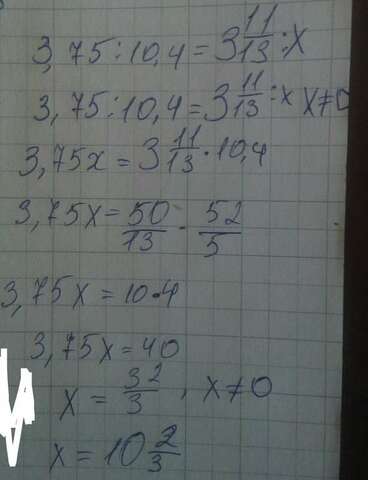 3,75:10,4=3 11/13:x
3,75:10,4=3 11/13:x x≠0
3,75x=3 11/13·10,4
3,75x=50/13·52/5
3,75x=10·4
3,75x=40
x=32/3, x≠0
x=10 2/3